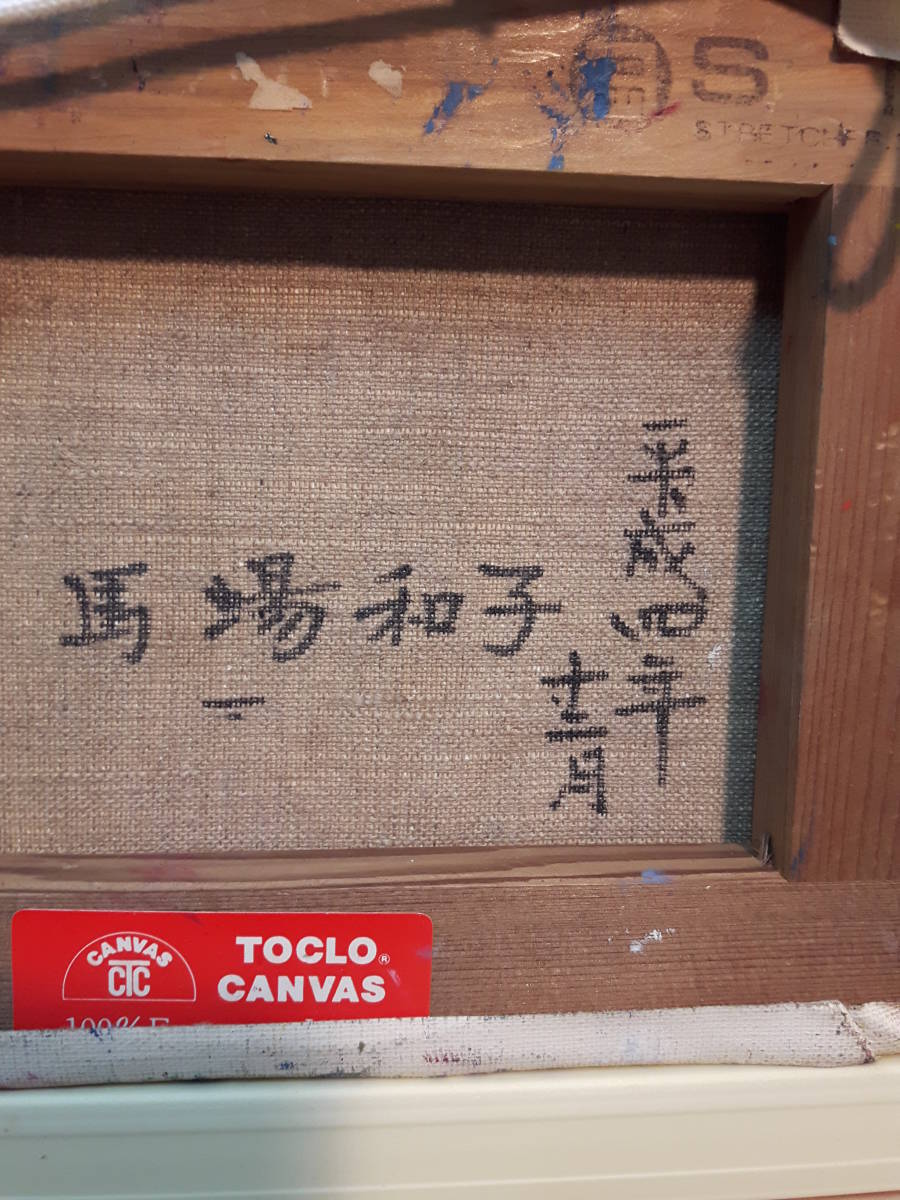 S
STRETCHER
平成四年
十二月
馬場和子
CANVAS
CTC
TOCLO®
CANVAS
100%